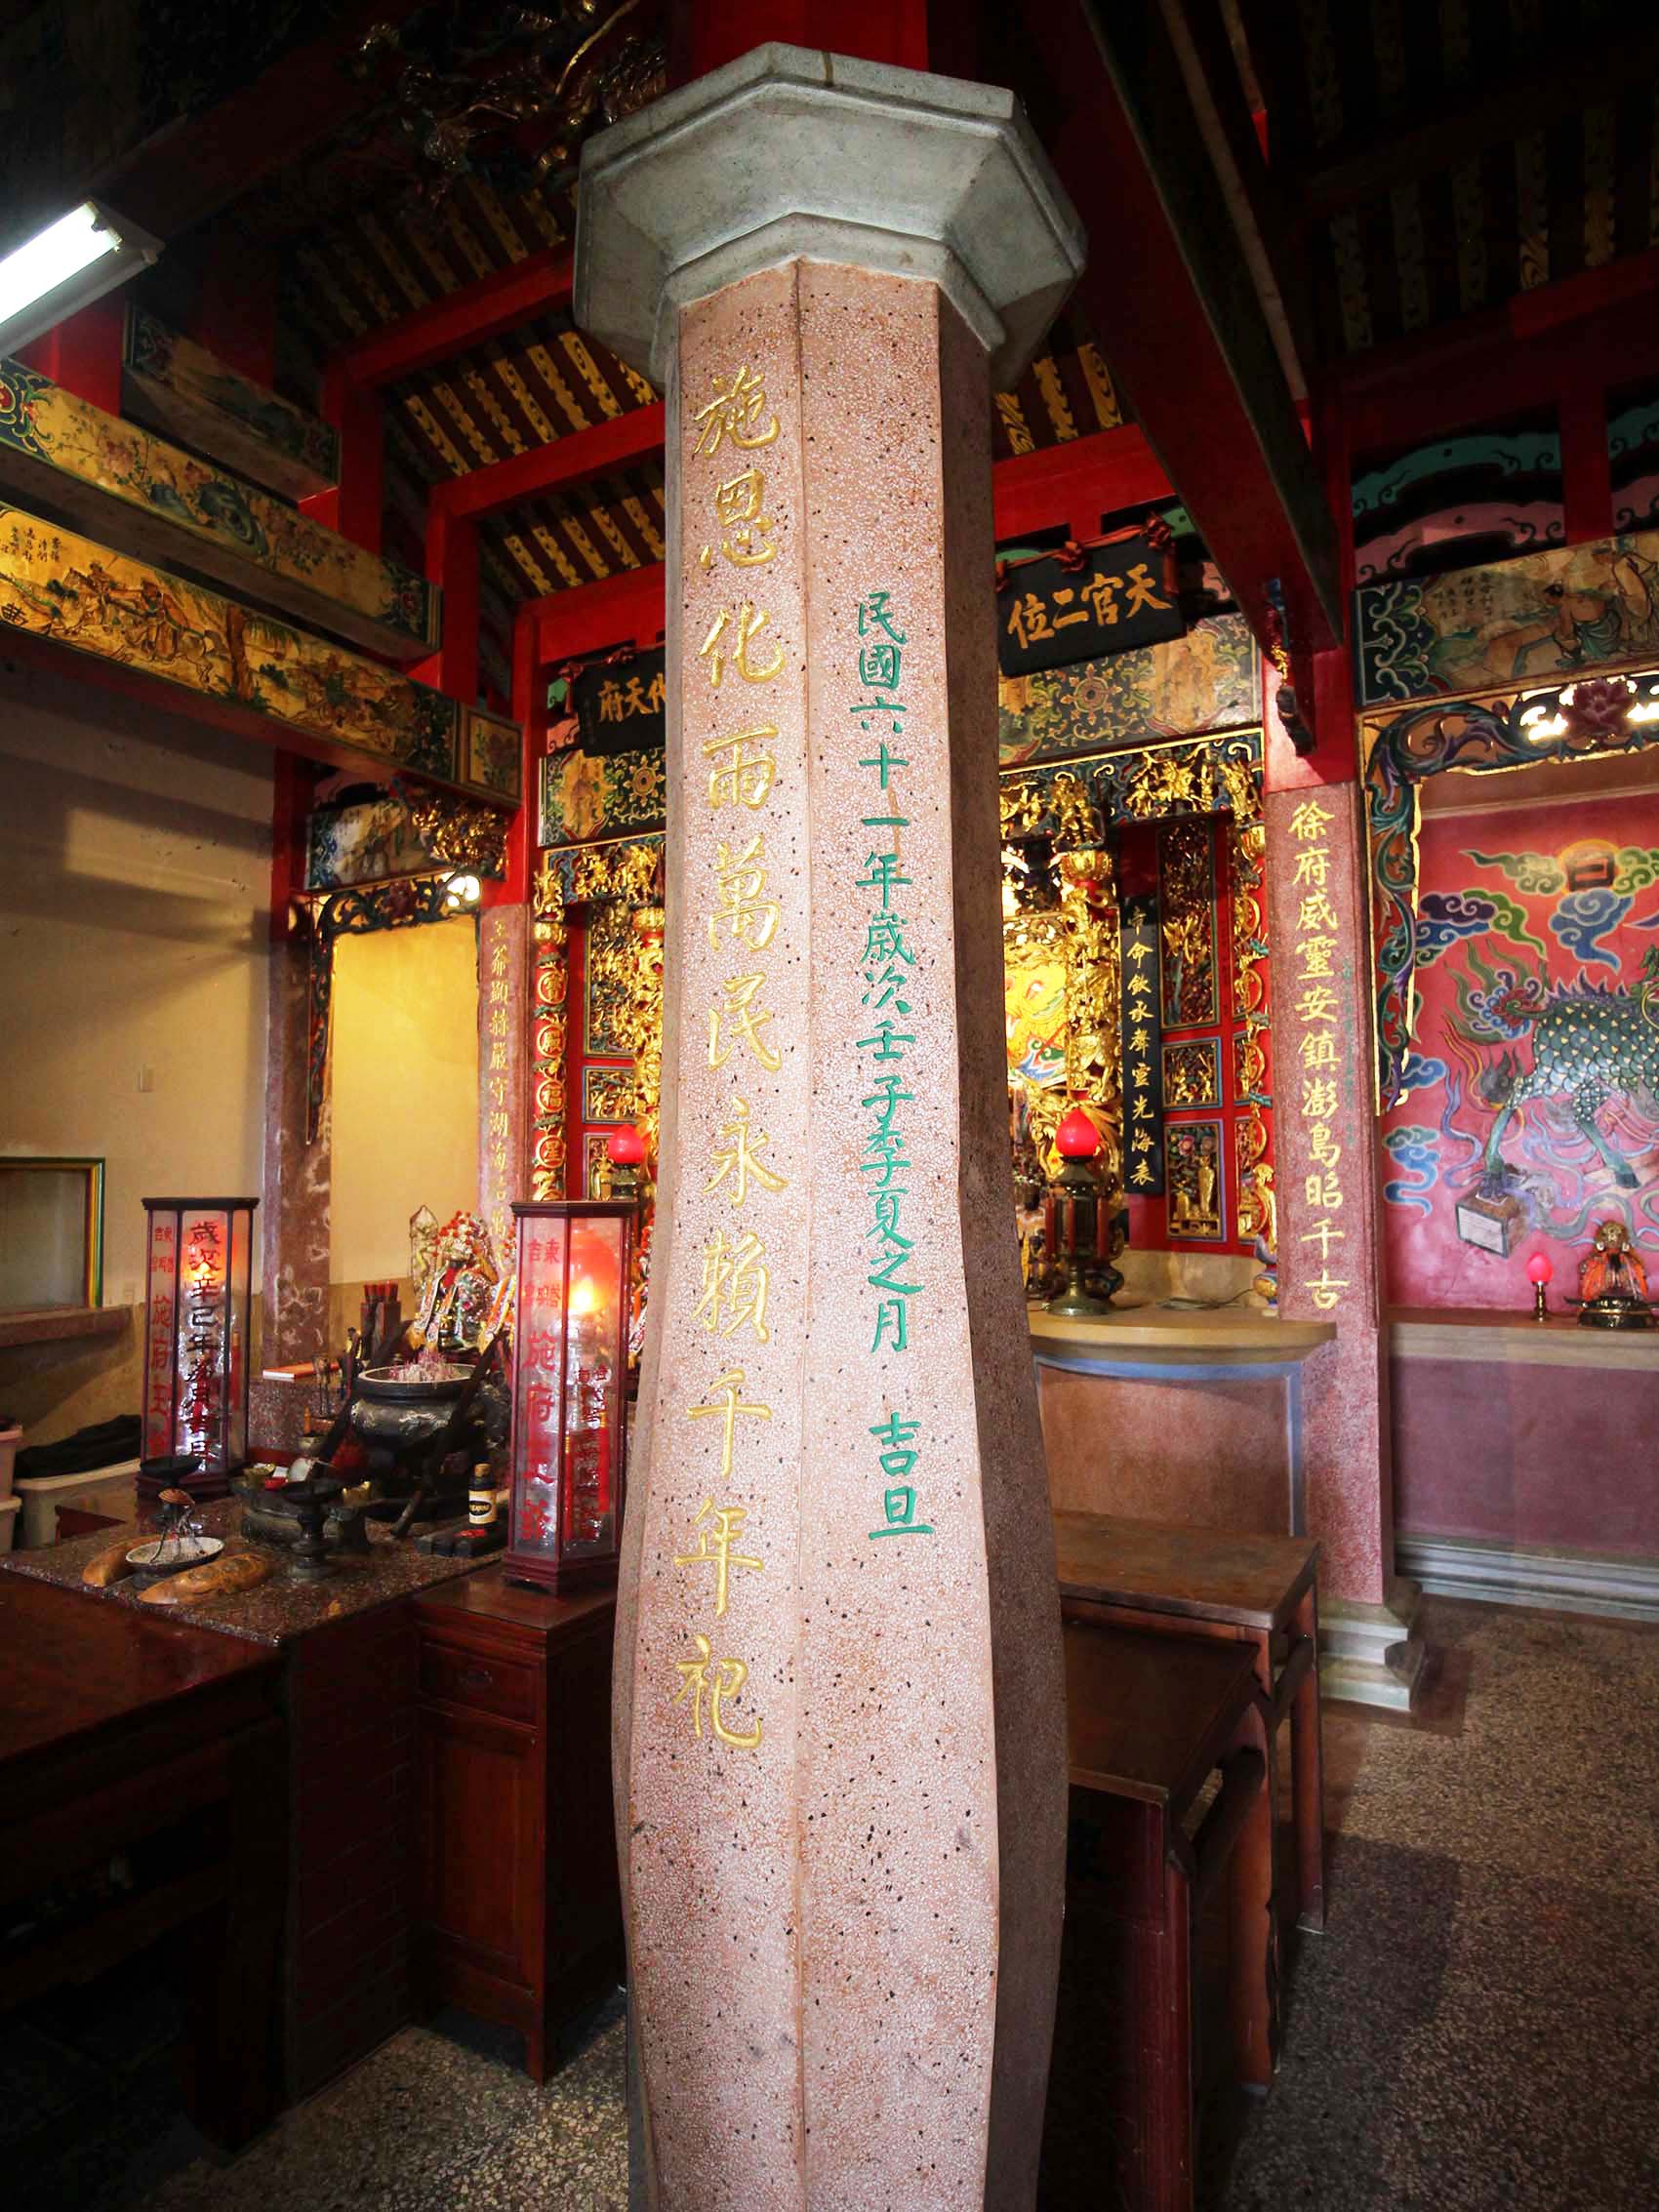 施恩化雨萬民永賴千年祀
民國六十一年歲次壬子季夏之月 吉旦
天官二位
代天府
徐府威靈安鎮澎島昭千古
王爺顯赫嚴守湖海
帝命欽承聲靈光海表
歲次辛巳年
施府王爺
施府王爺